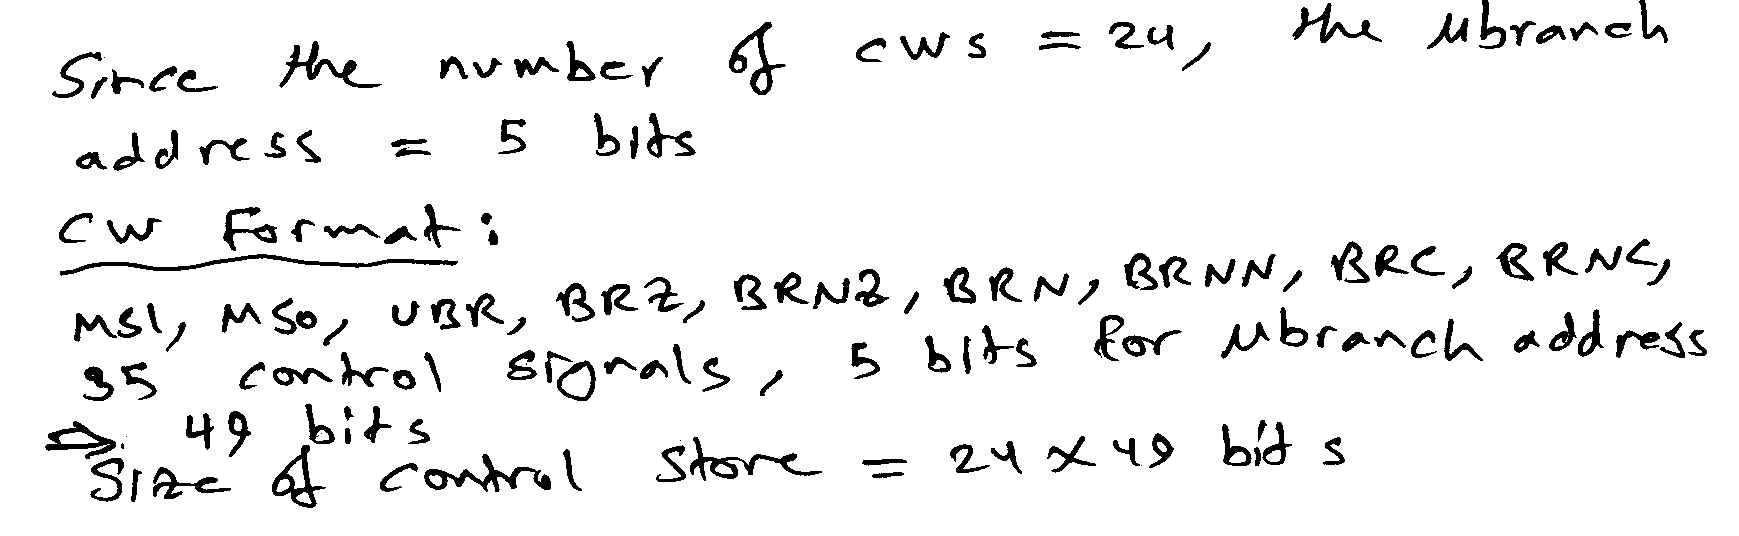 Since the number of CWs = 24, the μbranch
address = 5 bits
CW Format:
MS1, MS0, UBR, BRZ, BRNZ, BRN, BRNN, BRC, BRNC,
35 control signals, 5 bits for μbranch address
⇒ 49 bits
Size of control store = 24 x 49 bits